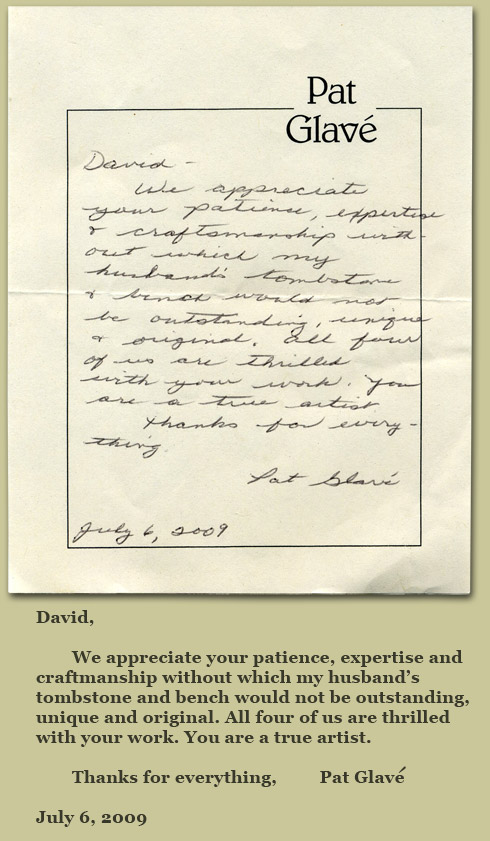 Pat
Glavé
David -
We appreciate
your patience, expertise
& craftsmanship with-
out which my
husband's tombstone
& bench would not
be outstanding, unique
& original. All four
of us are thrilled
with your work. You
are a true artist.
Thanks for every-
thing.
Pat Glavé
July 6, 2009
David,
We appreciate your patience, expertise and
craftmanship without which my husband's
tombstone and bench would not be outstanding,
unique and original. All four of us are thrilled
with your work. You are a true artist.
Thanks for everything, Pat Glavé
July 6, 2009